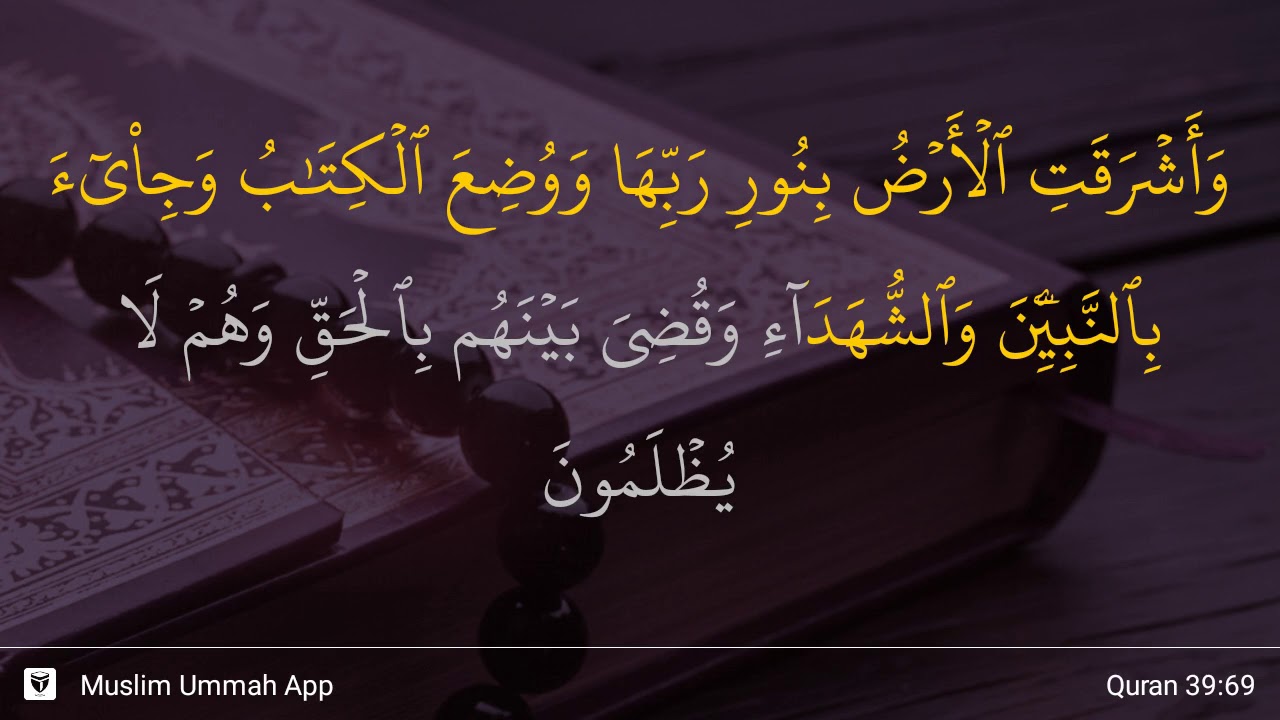 وَأَشْرَقَتِ ٱلْأَرْضُ بِنُورِ رَبِّهَا وَوُضِعَ ٱلْكِتَـٰبُ وَجِا۟ىٓءَ
بِٱلنَّبِيِّۦنَ وَٱلشُّهَدَآءِ وَقُضِىَ بَيْنَهُم بِٱلْحَقِّ وَهُمْ لَا
يُظْلَمُونَ
Muslim Ummah App
Quran 39:69